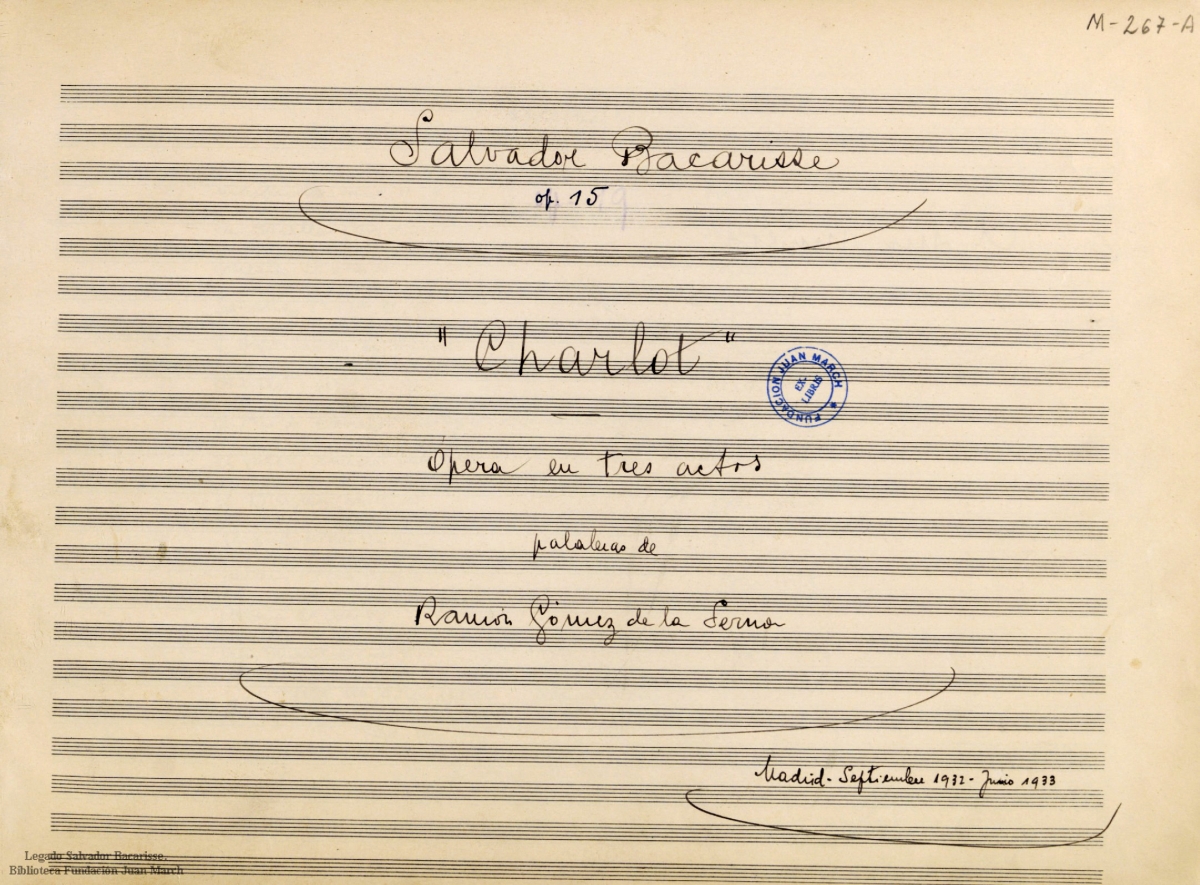 M-267-A
Salvador Bacarisse
op. 15
"Charlot"
FUNDACION JUAN MARCH *
EX-
LIBRIS
Opera en tres actos
palabras de
Ramón Gómez de la Serna
Madrid - Septiembre 1932 - Junio 1933
Legado Salvador Bacarisse.
Biblioteca Fundación Juan March